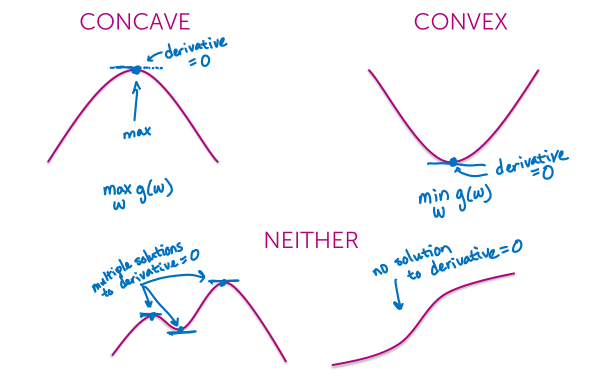 CONCAVE
derivative
=0
max
max g(w)
w
CONVEX
derivative
=0
min g(w)
w
NEITHER
multiple solutions
to derivative=0
no solution
to derivative=0